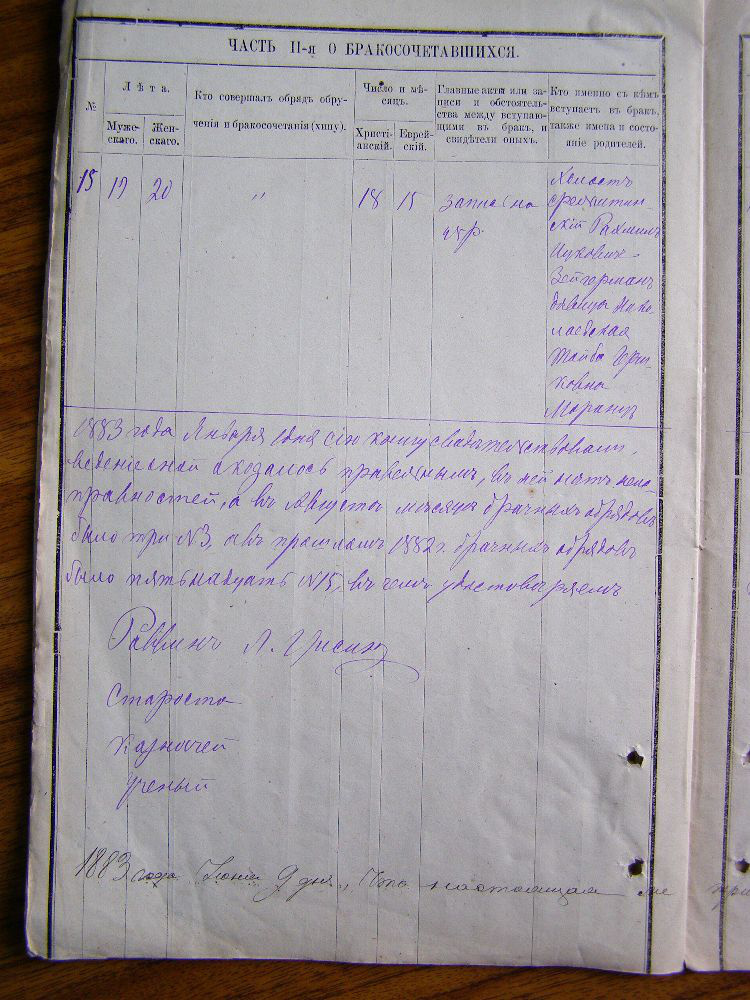 ЧАСТЬ II-я О БРАКОСОЧЕТАВШИХСЯ.
№
Лѣта.
Муже-
скаго.
Жен-
скаго.
Кто совершалъ обрядъ обру-
ченія и бракосочетанія (хипу).
Число и мѣ-
сяцъ.
Христі-
анскій.
Еврей-
скій.
Главные акты или за-
писи и обстоятель-
ства между вступаю-
щими въ бракъ, и
свидѣтели оныхъ.
Кто именно съ кѣмъ
вступаетъ въ бракъ,
также имена и состо-
яніе родителей.
15 19 20 " 18 15
Запись на
45 р.
Холостъ
Рахмиль
Ицковичъ
Зейгерманъ
дѣвица Нико-
лаевская
Тайба
ковна
1883 года Января 1 дня сію книгу свидѣтельствовали,
веденіе ней оказалось правельнымъ, въ ней нѣтъ неис-
правностей, а въ Августѣ мѣсяцѣ брачныхъ обрядовъ
было три №3, а въ прошломъ 1882 г. брачныхъ обрядовъ
было пятьнадцать №15, въ чемъ удостоверяемъ
Раввинъ Л.
Староста
Казначей
Ученый
1883 года Іюня 9 дня, Что настоящая ме